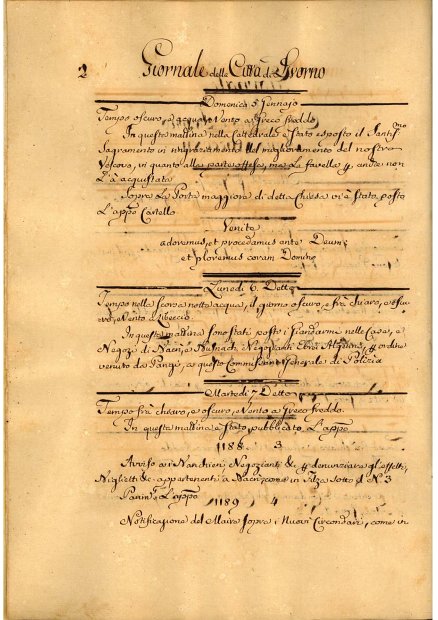 2
Giornale della Città di Livorno
Domenica 5 Gennajo
Tempo oscuro, e acqua, Vento a Greco freddo.
In questa mattina nella Cattedrale è stato esposto il Santis.mo
Sagramento in ringraziamento del miglioramento del nostro
Vescovo, in quanto alla parte offesa, ma la favella p. anche non
l'à acquistata
Sopra la Porta maggiore di detta Chiesa vi è stato posto
l'app.o Cartello
Venite
adoremus, et procedamus ante Deum;
et ploremus coram Domino
Lunedì 6. Detto
Tempo nella scorsa notte acqua, il giorno oscuro, e frà chiaro, e oscu
ro, Vento a Libeccio
In questa mattina sono stati posti i Giandarmi nelle Case, e
Negozj di Nacri, e Busnach Negozianti Ebrei Algerini, p. ordine
venuto da Parigi, a questo Commissario Generale di Polizia
Martedì 7 Detto
Tempo frà chiaro, e oscuro, e Vento a Greco freddo.
In questa mattina è stato pubblicato l'app.o
1188 3
Avviso ai Banchieri Negozianti &c. p. denunziare gli effetti,
Biglietti &c. appartenenti a Nacri, come in Filza sotto il N.o 3
Parim.e l'app.o
1189 4
Notificazione del Maire sopra i Nuovi Circondarj, come vi